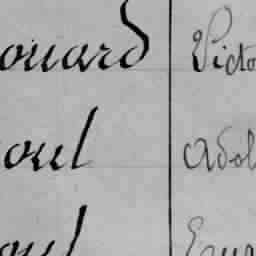 ouard Victo
oul Adol
oul Eug